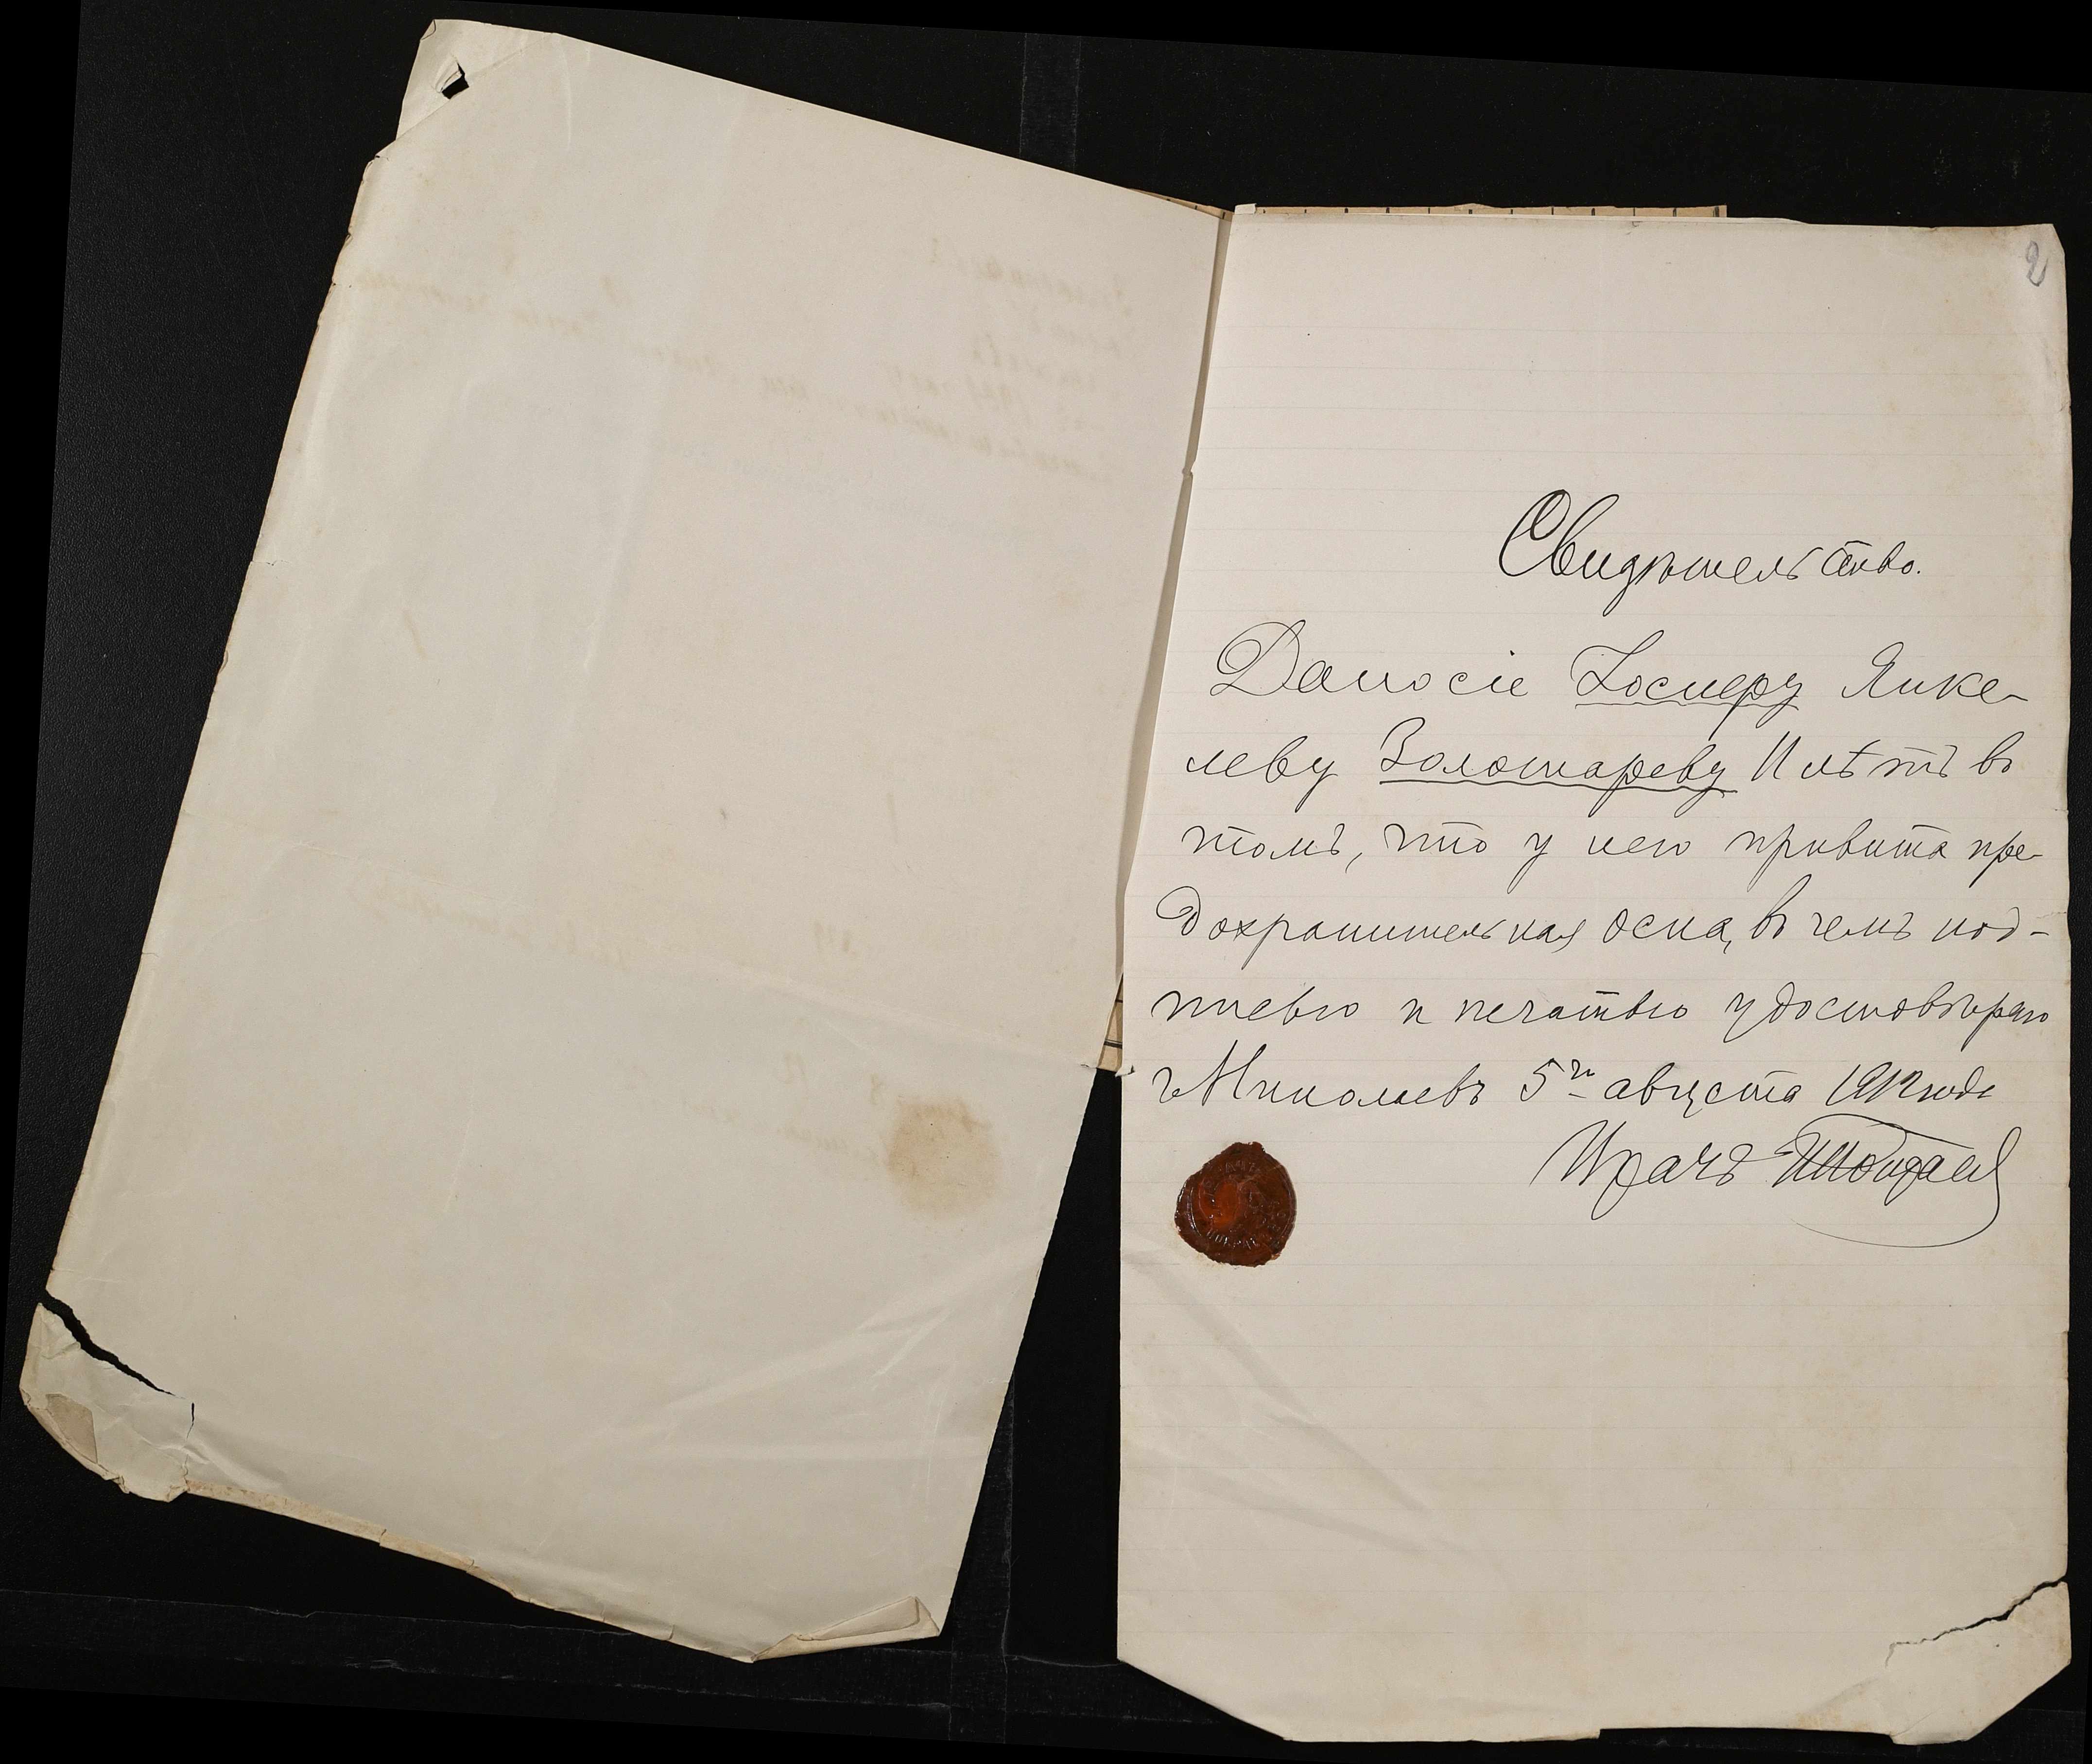 2
Свидѣтельство.
Дано сіе Іосперу Янке-
леву Золотареву 11 лѣтъ въ
томъ, что у него привита пре-
дохранительная оспа, въ чемъ под-
писью и печатью удостовѣряю
г Николаевъ 5го августа 1912 года
Врачъ